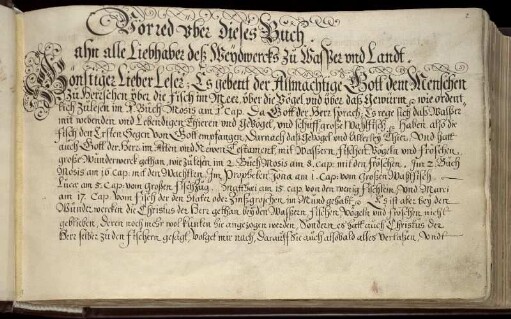 2
Vorred vber dieses Buch
ahn alle Liebhaber deß Weydwercks zu Waßer vnd Landt.
Günstiger Lieber Leser: Es gebent der Allmachtige Gott dem Menschen
Zu Herschen vber die fisch im Meer, vber die Vögel vnd vber daß Gewürm, wie ordent
lich zulesen im 1. Buch Mosis am 1. cap. Da Gott der Herr sprach: Es rege sich daß Waßer
mit webenden vnd Lebendigen Thieren vnd Gevögel, vnd schuff große Walfisch. Haben also die
fisch den Ersten Segen von Gott empfangen, Darnach daß Gevögel vnd
auch Gott der Herr im Alten vnd Newen Testament mit Waßern, fischen Vögeln vnd fröschen,
große Wunderwerck gethan, wie zulesen im 2. Buch Mosis am 8. cap. mit den fröschen. Im 2. Buch
Mosis am 16. cap. mit den Wachtlen. Im Propheten Jona am 1. cap. vom Großen Walfisch.
Lucæ am 5. Cap. vom Großen fischzug. Matthæi am 15. cap. von den wenig fischlein. Vnd Matthæi
am 17. Cap. vom fisch der den Stater oder Zinßgroschen, im Mund gehabt. Es ist aber bey den
Wunderwercken die Christus der Herr gethan bey den Waßern fischen Vögeln vnd fröschen nicht
geblieben, deren noch mehr wol kunten hie angezogen werden, Sondern es hatt auch Christus der
Herr selber zu den fischern gesagt, volget mir nach, darauff Sie auch alsbald alles verlaßen, Vndt